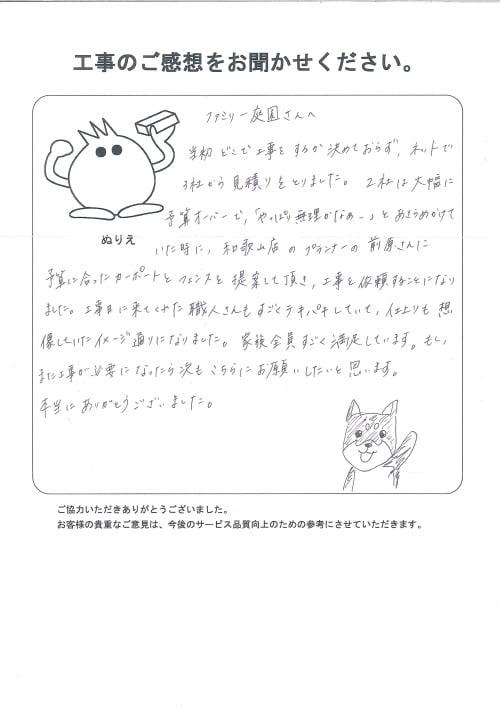 工事のご感想をお聞かせください。
ファミリー庭園さんへ
当初 どこで工事をするか決めておらず、ネットで
3社から見積りをとりました。 2社は大幅に
予算オーバーで、「やっぱり無理かなぁ~」とあきらめかけて
いた時に、和歌山店のプランナーの前原さんに
ぬりえ
予算に合ったカーポートとフェンスを提案して頂き、工事を依頼することになり
ました。工事日に来てくれた職人さんもすごくテキパキしていて、仕上りも想
像していたイメージ通りになりました。家族全員すごく満足しています。もし、
また工事が必要になったら次もこちらにお願いしたいと思います。
本当にありがとうございました。
ご協力いただきありがとうございました。
お客様の貴重なご意見は、今後のサービス品質向上のための参考にさせていただきます。